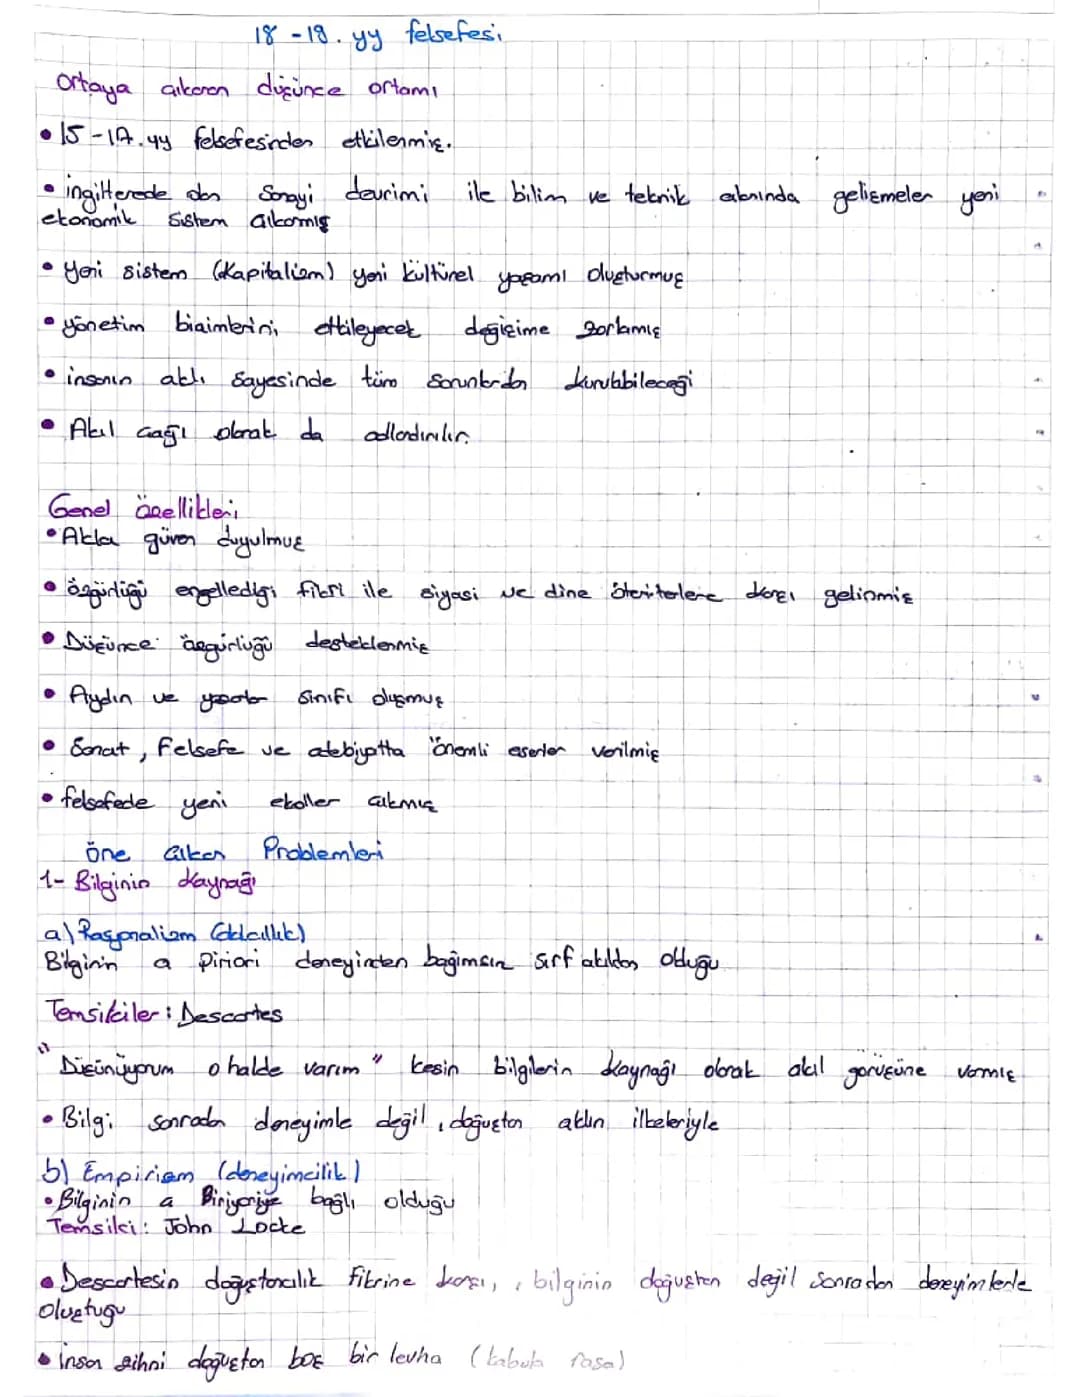 18-19. yy felsefesi
Ortaya çıkaran düşünce ortamı
• 15-17.yy felsefesinden etkilenmiş.
• ingilterede olan Sanayi devrimi ile bilim ve teknik alanında gelişmeler yeni
ekonomik sistem çıkarmış
• Yeni sistem (Kapitalizm) yeni kültürel yaşamı oluşturmuş
• yönetim biçimlerini etkileyecek değişime zorlamış
• insanın aklı sayesinde tüm sorunlardan kurulabileceği
• Akıl çağı olarak da adlandırılır.
Genel özellikleri
• Akla güven duyulmuş
• özgürlüğü engellediği fikri ile siyasi ve dine otoriterlere karşı gelinmiş
• Düşünce özgürlüğü desteklenmiş
• Aydın ve yazar sınıfı oluşmuş
• Sanat, Felsefe ve edebiyatta önemli eserler verilmiş
• felsefede yeni ekoller çıkmış
öne çıkan Problemleri
1- Bilginin Kaynağı
a) Rasyonalizm (akılcılık)
Bilginin a piriori deneyimden bağımsız sırf akıldan olduğu
Temsilciler: Descartes
"Düşünüyorum o halde varım" kesin bilgilerin kaynağı olarak akıl görüşüne varmış
• Bilgi sonradan deneyimle değil, doğuştan aklın ilkeleriyle
b) Empirizm (deneyimcilik)
• Bilginin a Biriyoriye bağlı olduğu
Temsilci: John Locke
• Descartesin doğuştancılık fikrine karşı, bilginin doğuştan değil sonradan deneyimlerle
oluştuğu
• insan zihni doğuştan boş bir levha (tabula rasa)